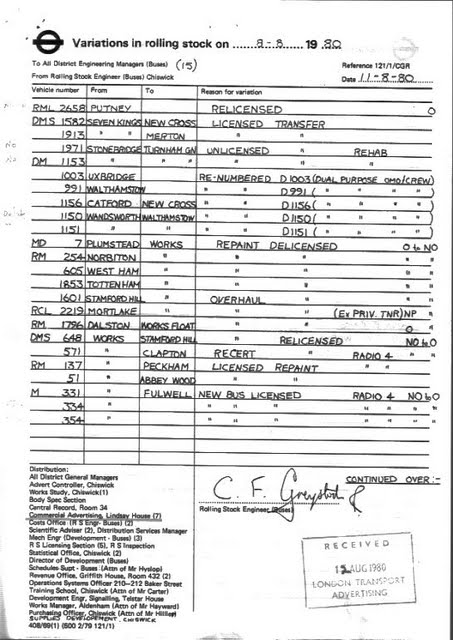 Variations in rolling stock on 8-8 1980
To All District Engineering Managers (Buses) (15)
Reference 121/1/CGR
From Rolling Stock Engineer (Buses) Chiswick
Date 11-8-80
Vehicle number From To Reason for variation
RML 2658 PUTNEY RELICENSED O
DMS 1582 SEVEN KINGS NEW CROSS LICENSED TRANSFER
1913 " " MERTON " "
1971 STONEBRIDGE TURNHAM GN UNLICENSED " REHAB
DM 1153 " " " " "
1003 UXBRIDGE RE-NUMBERED D1003 (DUAL PURPOSE OMO/CREW)
991 WALTHAMSTOW " D991 ( " " " )
1156 CATFORD NEW CROSS " D1156 ( " " " )
1150 WANDSWORTH WALTHAMSTOW " D1150 ( " " " )
1151 " " " D1151 ( " " " )
MD 7 PLUMSTEAD WORKS REPAINT DELICENSED O to NO
RM 254 NORBITON " " " " "
605 WEST HAM " " " " "
1853 TOTTENHAM " " " " "
1601 STAMFORD HILL " OVERHAUL " " "
RCL 2219 MORTLAKE " " " (EX PRIV. TNR) NP "
RM 1796 DALSTON WORKS FLOAT " " O
DMS 648 WORKS STAMFORD HILL " RELICENSED NO to O
571 " CLAPTON RECERT " RADIO 4 " "
RM 137 " PECKHAM LICENSED REPAINT " "
51 " ABBEY WOOD " " " "
M 331 FULWELL NEW BUS LICENSED RADIO 4 NO to O
334 " " " " " " " "
354 " " " " " " " "
CONTINUED OVER:-
C. F. Greystock
Rolling Stock Engineer (Buses)
Distribution:
All District General Managers
Advert Controller, Chiswick
Works Study, Chiswick (1)
Body Spec Section
Central Record, Room 34
Commercial Advertising, Lindsay House (7)
Costs Office (R S Engr- Buses) (2)
Scientific Adviser (2), Distribution Services Manager
Mech Engr (Development - Buses) (3)
R S Licensing Section (5), R S Inspection
Statistical Office, Chiswick (2)
Director of Development (Buses)
Schedules Supt - Buses (Attn of Mr Hyslop)
Revenue Office, Griffith House, Room 432 (2)
Operations Systems Officer 210-212 Baker Street
Training School, Chiswick (Attn of Mr Carter)
Development Engr, Signalling, Telstar House
Works Manager, Aldenham (Attn of Mr Hayward)
Purchasing Officer, Chiswick (Attn of Mr Hillier)
SUPPLIES DEVELOPMENT, CHISWICK
408/69(1) (500 2/79 121/1)
RECEIVED
15 AUG 1980
LONDON TRANSPORT
ADVERTISING